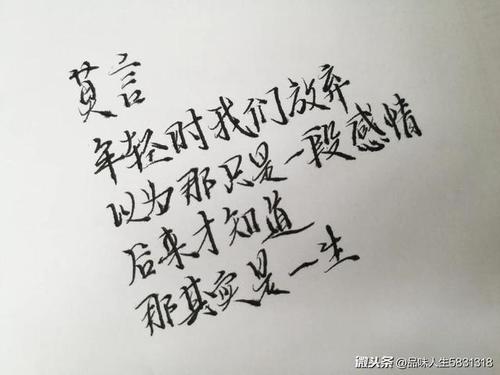 莫言
年轻时我们放弃
以为那只是一段感情
后来才知道
那其实是一生
微头条 @品味人生5831318